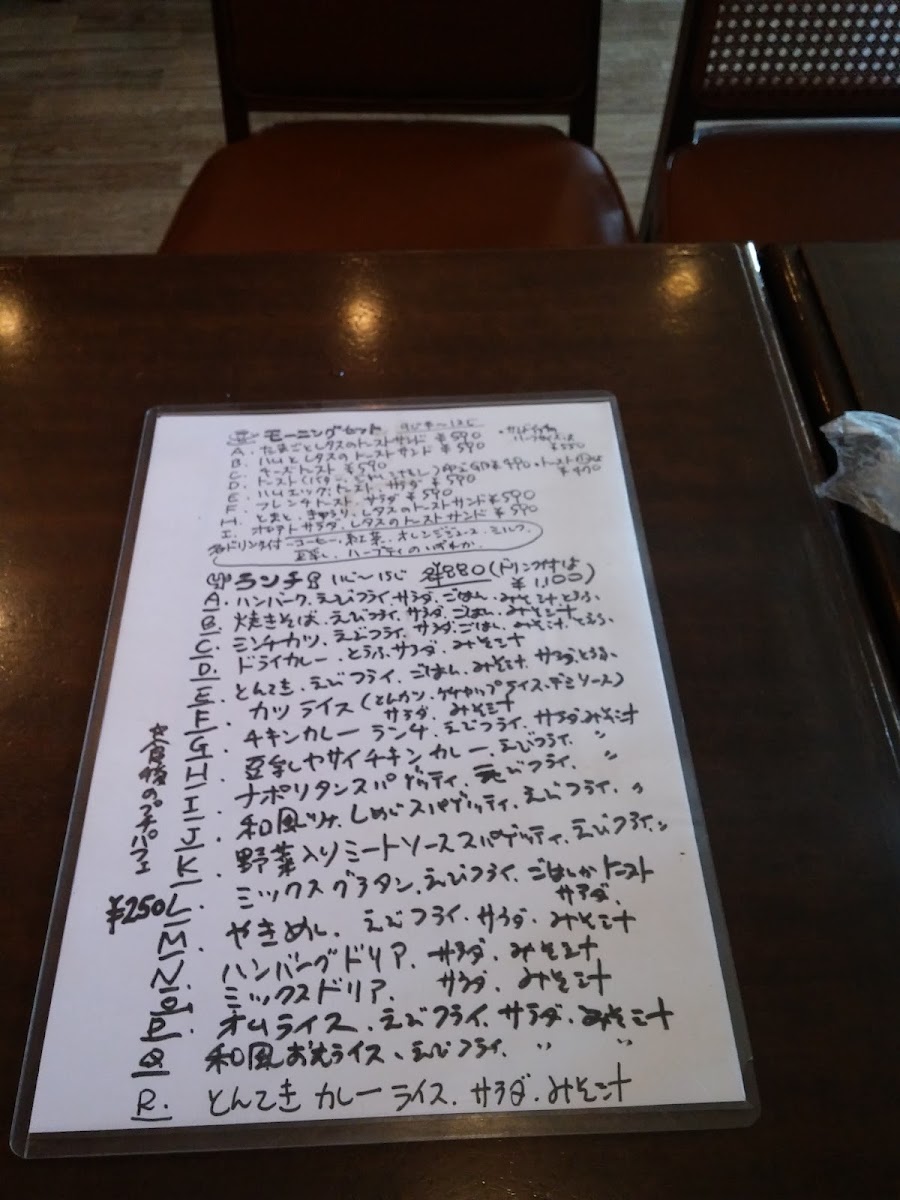 モーニングセット 9じ半～12じ
A. たまごとレタスのトーストサンド ¥590
B. ハムとレタスのトーストサンド ¥590
C. チーズトースト ¥590
D. トースト
E. ハムエッグ. トースト. サラダ ¥590
F. フレンチトースト. サラダ ¥590
H. とまと. きゅうり. レタスのトーストサンド ¥590
I. ポテトサラダ. レタスのトーストサンド ¥590
各ドリンク付 コーヒー. 紅茶. オレンジジュース. ミルク.
豆乳. ハーブティのいずれか.
・サンドイッチ
¥550
¥490
¥470
ランチ 11じ～15じ 各¥880 (ドリンク付は
¥1,100)
A. ハンバーグ. えびフライ. サラダ. ごはん. みそ汁. とうふ
B. 焼きそば. えびフライ. サラダ. ごはん. みそ汁
C. ミンチカツ. えびフライ. サラダ. ごはん. みそ汁. とうふ.
D. ドライカレー. とうふ. サラダ. みそ汁
E. とんてき. えびフライ. ごはん. みそ汁. サラダ. とうふ.
F. カツライス (とんかつ. ケチャップライス. デミソース)
サラダ. みそ汁
G. チキンカレーランチ. えびフライ. サラダ. みそ汁
H. 豆乳ヤサイチキンカレー. えびフライ. 〃
I. ナポリタンスパゲッティ. えびフライ. 〃
J. 和風ツナ. しめじスパゲッティ. えびフライ. 〃
K. 野菜入りミートソーススパゲッティ. えびフライ. 〃
L. ミックスグラタン. えびフライ. ごはんかトースト
サラダ.
M. やきめし. えびフライ. サラダ. みそ汁
N. ハンバーグドリア. サラダ. みそ汁
O. ミックスドリア. サラダ. みそ汁
P. オムライス. えびフライ. サラダ. みそ汁
Q. 和風おむライス. えびフライ. 〃 〃
R. とんてきカレーライス. サラダ. みそ汁
☆食後のプチパフェ
¥250